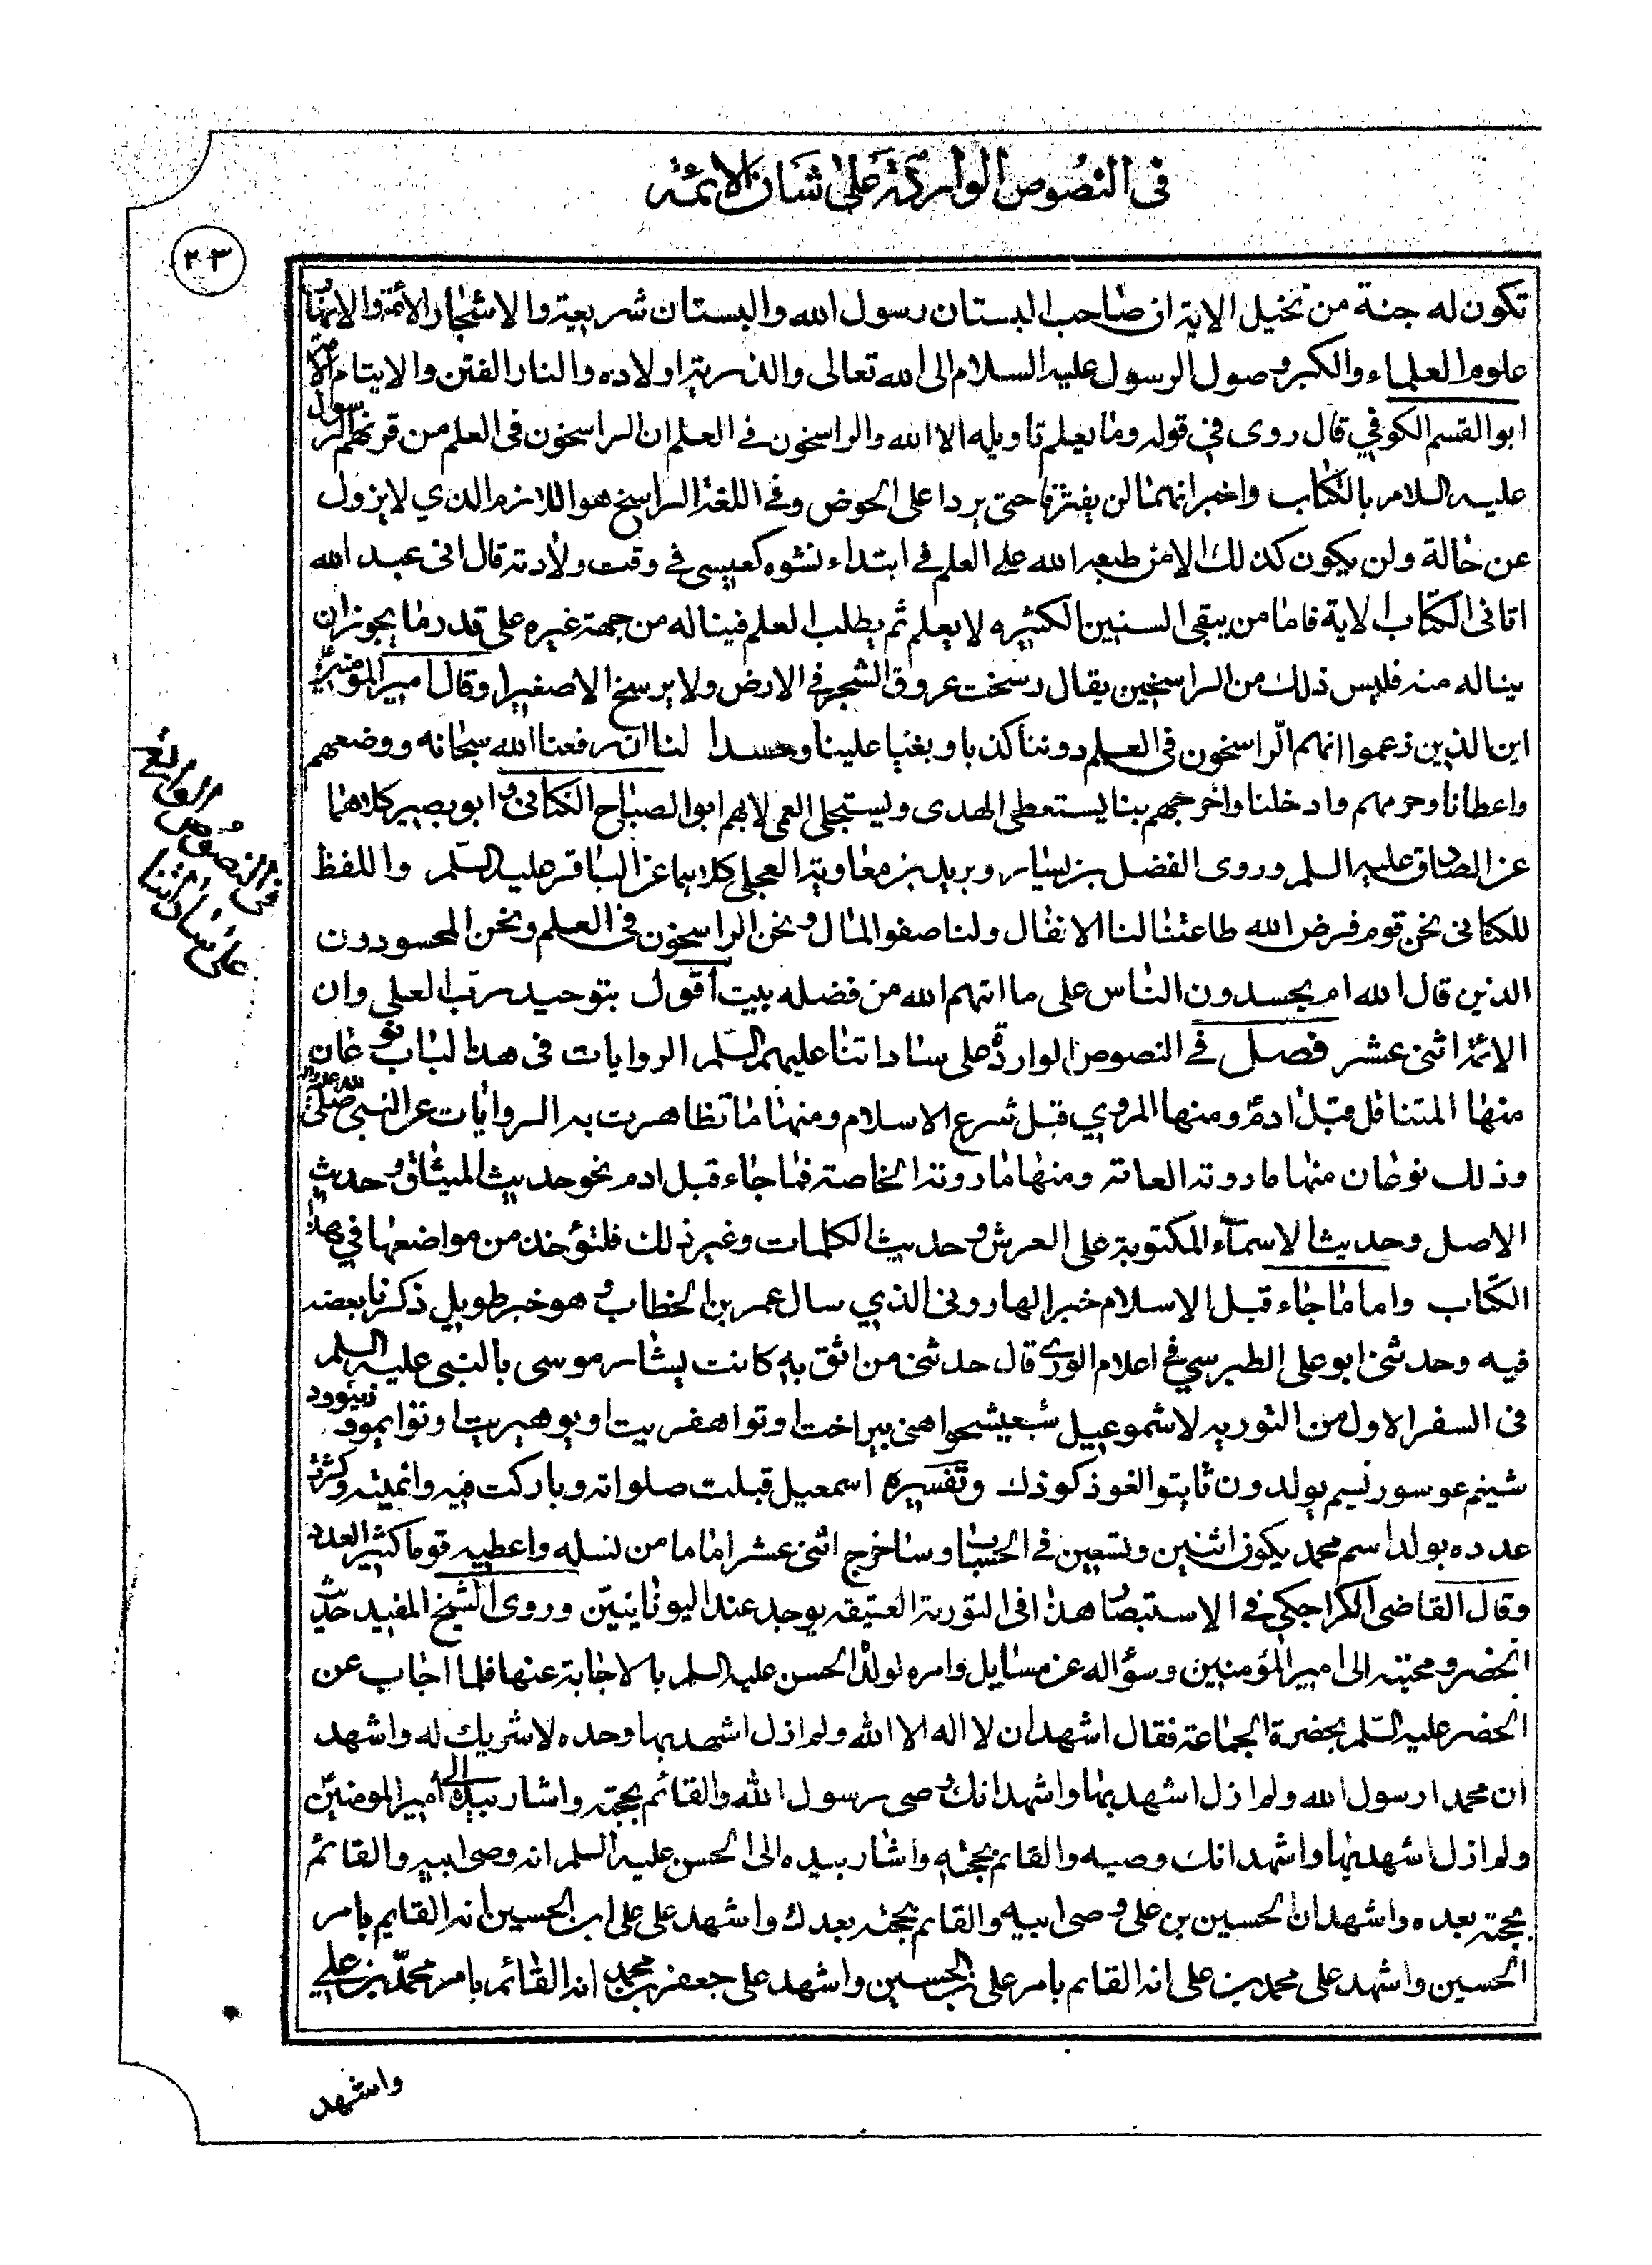 في النصوص الواردة على شان الائمة
٢٣
تكون له جنة من نخيل الاية ان صاحب البستان رسول الله والبستان شريعته والاشجار الائمة والانهار
علوم العلماء والكبر وصول الرسول عليه السلام الى الله تعالى والذرية اولاده والنار الفتن والايتام
ابو القسم الكوفي قال روى في قوله وما يعلم تأويله الا الله والراسخون في العلم ان الراسخون في العلم من قرنهم الرسول
عليه السلام بالكتاب واخبر انهما لن يفترقا حتى يردا على الحوض وفي اللغة الراسخ هو اللازم الذي لا يزول
عن حالة ولن يكون كذلك الا من طبعه الله على العلم في ابتداء نشوه كعيسى في وقت ولادته قال انى عبد الله
اتانى الكتاب الاية فاما من يبقى السنين الكثيره لا يعلم ثم يطلب العلم فيناله من جهة غيره على قدر ما يجوز ان
يناله منه فليس ذلك من الراسخين يقال رسخت عروق الشجر في الارض ولا يرسخ الا صغيرا وقال امير المؤمنين
اين الذين زعموا انهم الراسخون فى العلم دوننا كذبا وبغيا علينا وحسدا لنا ان رفعنا الله سبحانه ووضعهم
واعطانا وحرمهم وادخلنا واخرجهم بنا يستعطى الهدى ويستجلى العمى لا بهم ابو الصباح الكنانى و ابو بصير كلاهما
عن الصادق عليه السلم وروى الفضل بن يسار وبريد بن معاوية العجلى كلاهما عن الباقر عليه السلم واللفظ
للكنانى نحن قوم فرض الله طاعتنا لنا الانفال ولنا صفو المال و نحن الراسخون فى العلم ونحن المحسودون
الذين قال الله ام يحسدون الناس على ما اتهم الله من فضله بيت اقول بتوحيد رب العلى وان
الائمة اثنى عشر فصل في النصوص الواردة على ساداتنا عليهم السلم الروايات فى هذا الباب نوعان
منها المتناقل قبل ادم و منها المروي قبل شرع الاسلام ومنها ما تظاهرت به الروايات عن النبى صلى الله عليه واله
وذلك نوعان منها ما روته العامة ومنها ما روته الخاصة فما جاء قبل ادم نحو حديث الميثاق و حديث
الاصل وحديث الاسماء المكتوبة على العرش و حديث الكلمات وغير ذلك فلتؤخذ من مواضعها في هذا
الكتاب واما ما جاء قبل الاسلام خبر الهارونى الذي سال عمر بن الخطاب و هو خبر طويل ذكرنا بعضه
فيه وحدثنى ابو على الطبرسي في اعلام الورى قال حدثنى من اثق به كانت بشارة موسى بالنبى عليه السلم
فى السفر الاول من التورية لاشموعيل شمعيشحوا هنى بيراختا وتوا هفريت اوتو وهيربيتى اوتو ايموو زنيوود
شينم عوسور نسيم يولدون ثابتو الغوذ كوذك وتفسيره اسمعيل قبلت صلواته وباركت فيه وانميته وكثرت
عدده بولد اسم محمد يكون اثنين وتسعين في الحساب وساخرج اثنى عشر اماما من نسله واعطيه قوما كثير العدد
وقال القاضى الكراجكي في الاستبصار هذا فى التورية العتيقه يوجد عند اليونانيين وروى الشيخ المفيد حديث
الخضر و محبته الى امير المؤمنين وسؤاله عن مسايل وامره لولده الحسن عليه السلم بالاجابة عنها فلما اجاب عن
الخضر عليه السلم بحضرة الجماعة فقال اشهد ان لا اله الا الله ولم ازل اشهد بها وحده لا شريك له واشهد
ان محمدا رسول الله ولم ازل اشهد بها واشهد انك وصى رسول الله والقائم بحجته واشار بيده الى امير المومنين
ولم ازل اشهد بها واشهد انك وصيه والقايم بحجته واشار بيده الى الحسن عليه السلم انه وصى ابيه والقائم
بحجته بعده واشهد ان الحسين بن على وصى ابيه والقايم بحجته بعدك واشهد على على ابن الحسين انه القايم بامر
الحسين واشهد على محمد بن على انه القايم بامر على بن الحسين واشهد على جعفر بن محمد انه القائم بامر محمد بن علي
واشهد
الرابع
فى النصوص
على شان